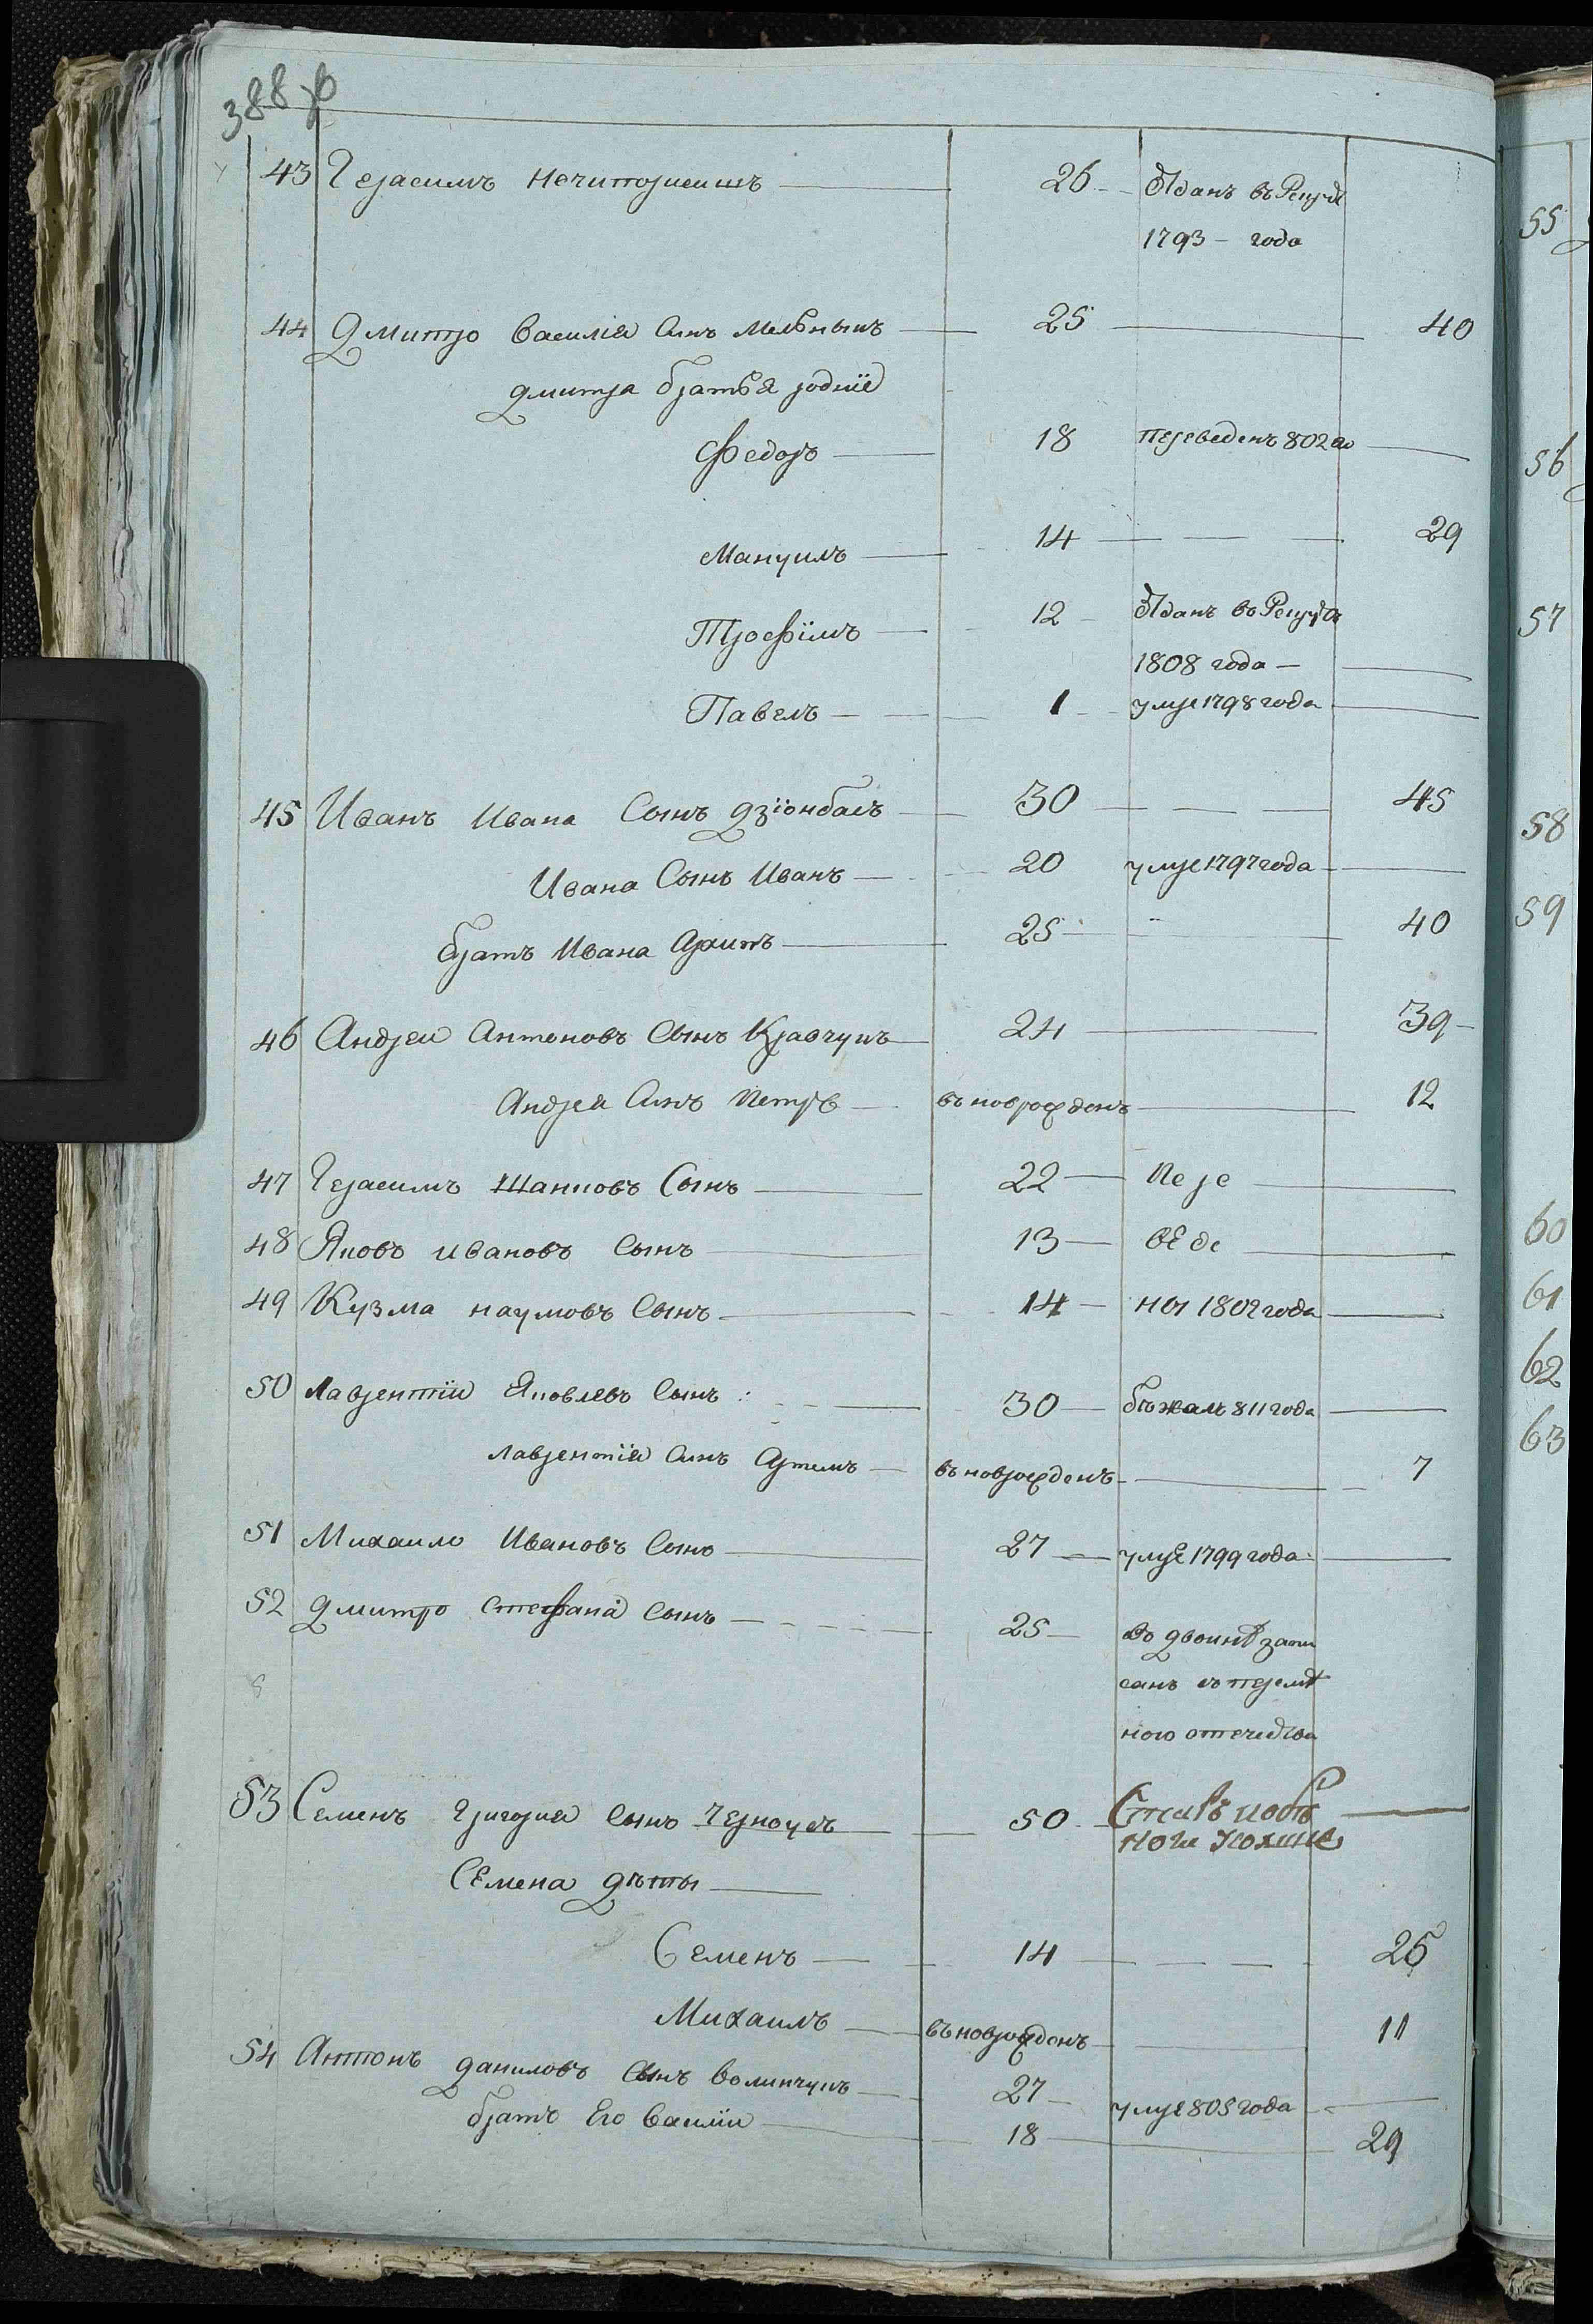 388 об
43 Герасимъ Нечипоришинъ 26 Отданъ въ Рекруты
1793 года
55
44 Дмитро Василія Сынъ Мельныкъ 25 40
Дмитра братья родніе
Федоръ 18 переведенъ 802 го
56
Мануилъ 14 29
Трофимъ 12 Отданъ въ Рекруты
1808 года
57
Павелъ 1 умре 1798 года
45 Иванъ Ивана Сынъ Дзіонбакъ 30 45
58
Ивана Сынъ Иванъ 20 умре 1797 года
братъ Ивана 25 40
59
46 Андреи Антоновъ Сынъ Кравчукъ 24 39
Андрея Сынъ Петръ въ новрожденъ 12
47 Герасимъ Сынъ 22 пере
48 Яковъ Ивановъ Сынъ 13 веде
60
49 Кузма наумовъ Сынъ 14 ны 1802 года
61
50 Лаврентіи Яковлевъ Сынъ 30 бѣжалъ 811 года
62
Лаврентія Сынъ Артемъ въ новрожденъ 7
63
51 Михаило Ивановъ Сынъ 27 умре 1799 года
52 Дмитро Стефана Сынъ 25 во двоинѣ запи
санъ съ
ною отечества
53 Семенъ Григорія Сынъ Черноусъ 50
Семена дѣты
Семенъ 14 25
Михаилъ въ новрожденъ 11
54 Антонъ Даниловъ Сынъ Волинчукъ 27 умре 805 года
братъ Его Василіи 18 29